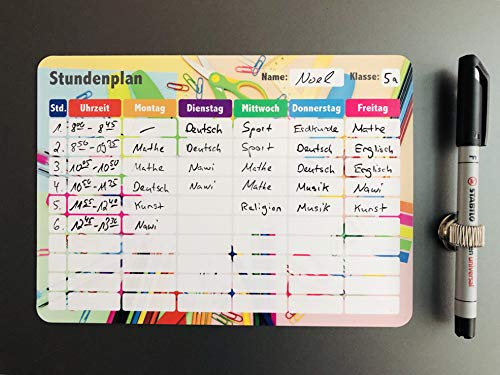 Stundenplan Name: Noel Klasse: 5a
Std. Uhrzeit Montag Dienstag Mittwoch Donnerstag Freitag
1. 8⁰⁰ - 8⁴⁵ — Deutsch Sport Erdkunde Mathe
2. 8⁵⁰ - 9³⁵ Mathe Deutsch Sport Deutsch Englisch
3 10⁰⁵ - 10⁵⁰ Mathe Nawi Mathe Deutsch Englisch
4. 10⁵⁰ - 11³⁵ Deutsch Nawi Mathe Musik Nawi
5. 11⁵⁵ - 12⁴⁰ Kunst Religion Musik Kunst
6. 12⁴⁵ - 13³⁰ Nawi
STABILO
universal
F